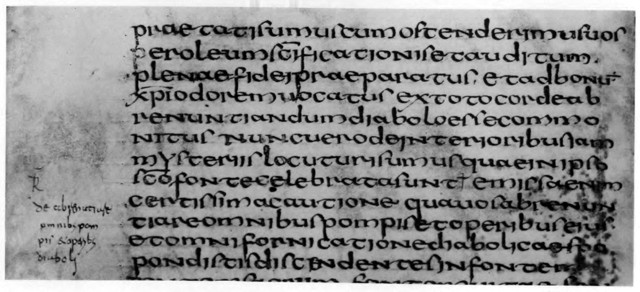 praefatisumuscumostenderimusuos
peroleumscificationisetauditum
plenaefideipraeparatus, etadbonū
xpīodoremuocatus extotocordeab
renuntiandumdiaboloessecommo
nitus nuncuerodeinterioribusiam
mysteriislocuturisumusquaeinipso
scōfontecelebratasunt emissaenim
certissimacautione quauosabrenun
tiareomnibuspompisetoperibuseius
etomnifornicationediabolica
pondistisdiscendentesinfontem
de
diaboli